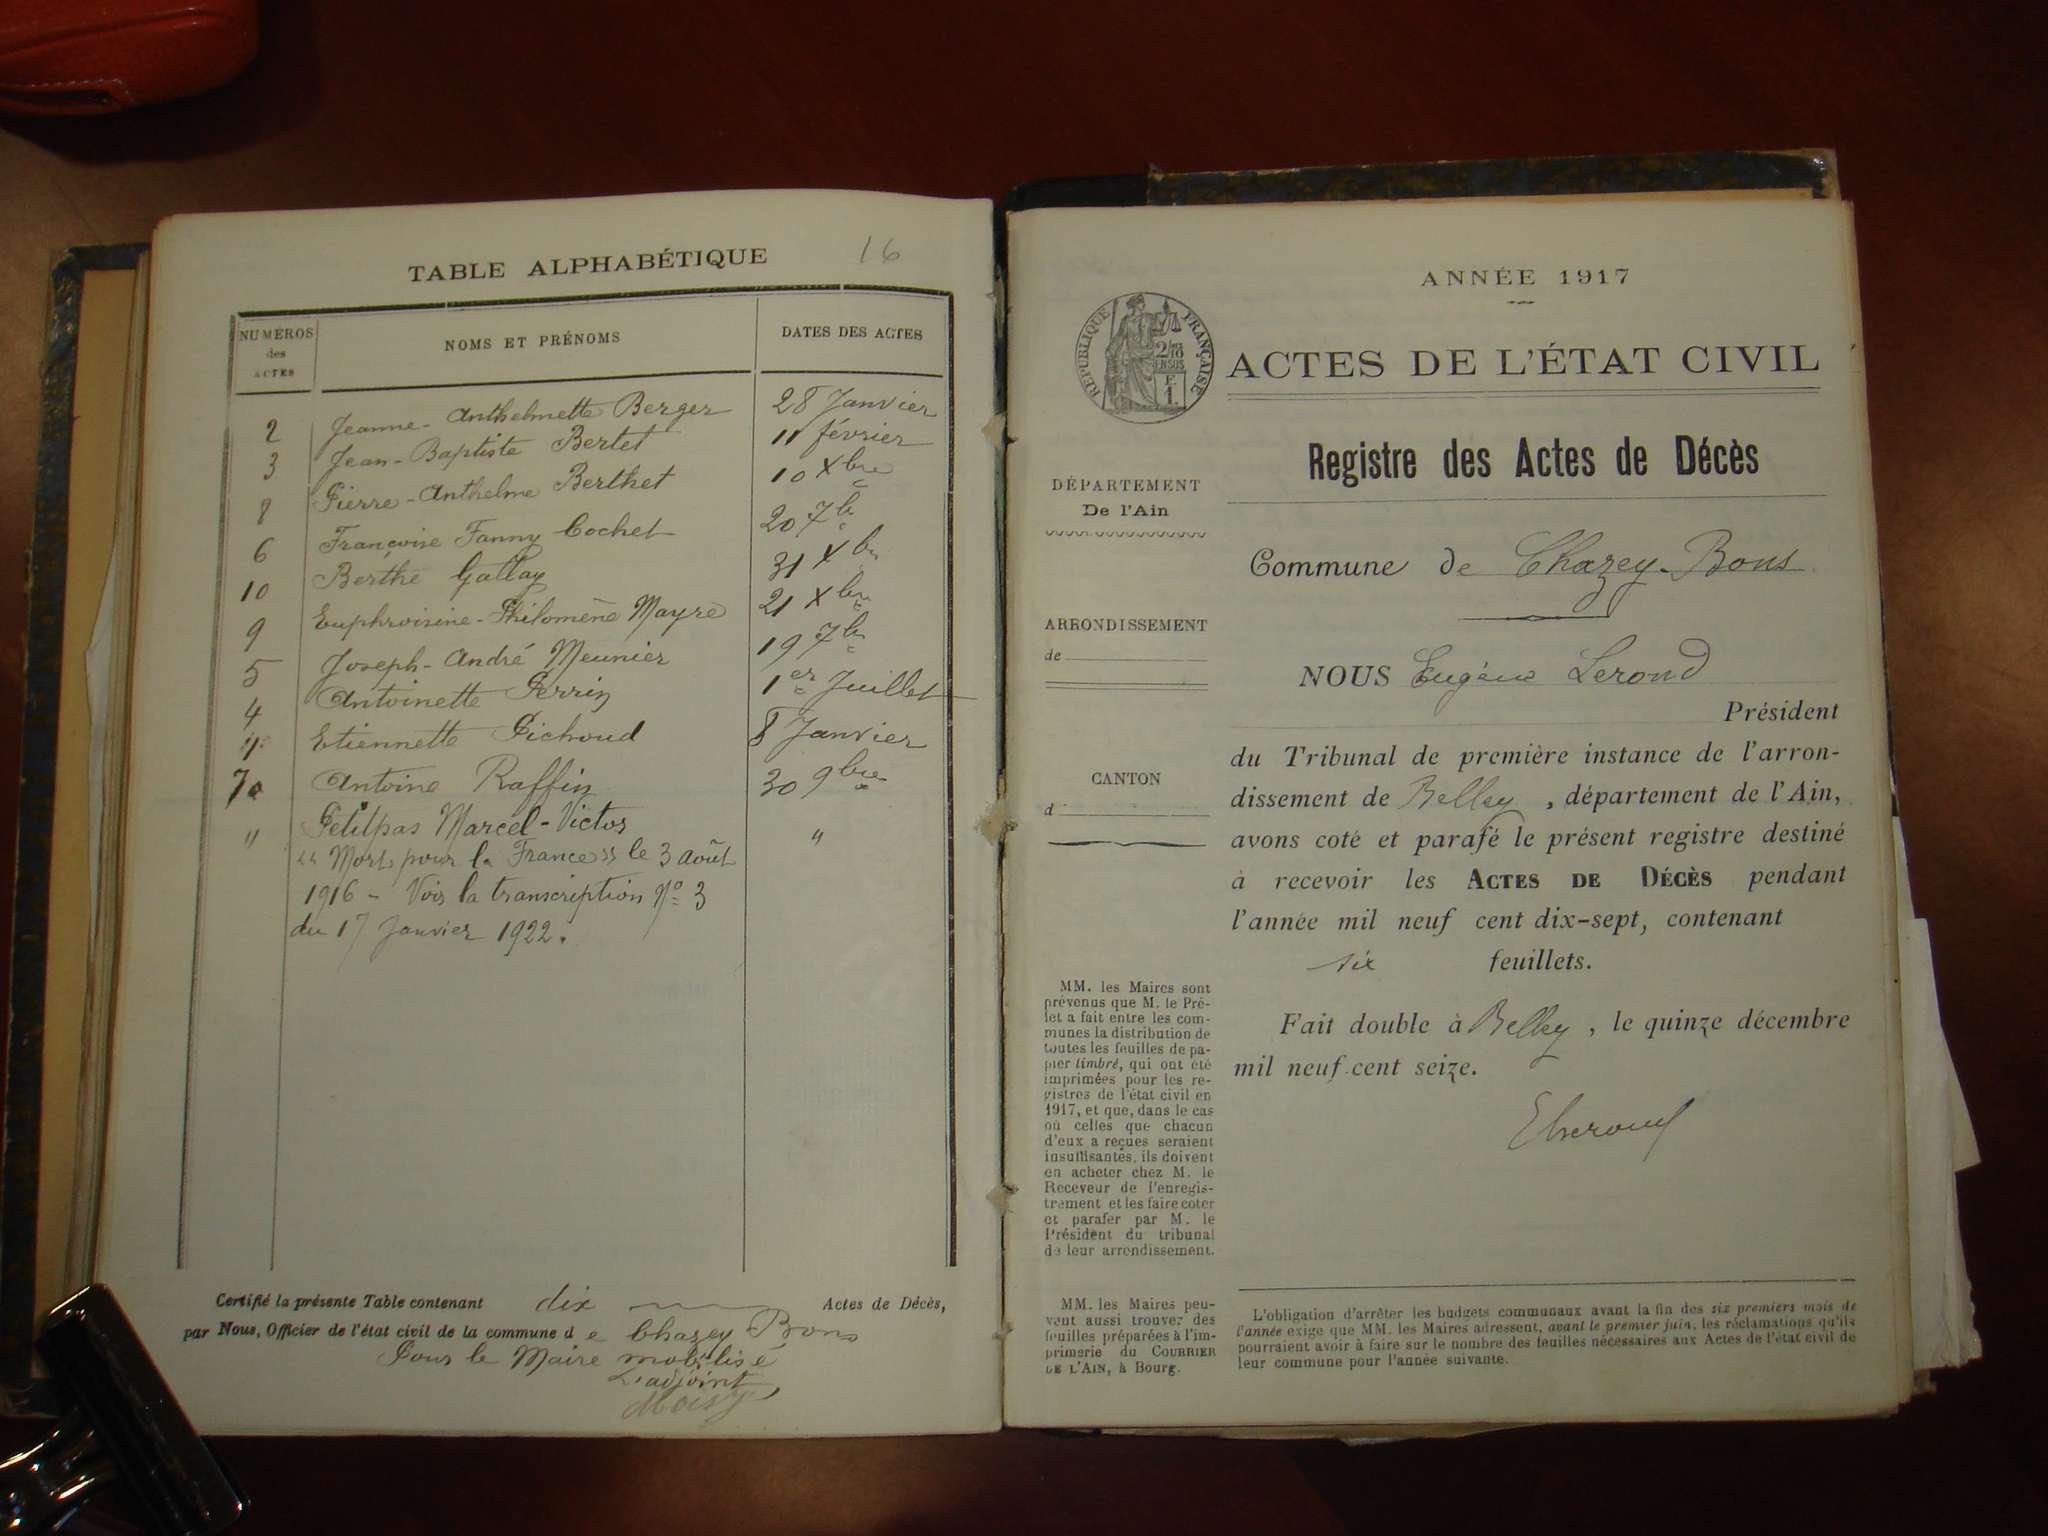 TABLE ALPHABÉTIQUE 16
NUMÉROS des ACTES NOMS ET PRÉNOMS DATES DES ACTES
2 Jeanne-Anthelmette Berger 28 Janvier
3 Jean-Baptiste Bertet 11 février
8 Pierre-Anthelme Berthet 10 Xbre
6 Françoise Fanny Cochet 20 7b
10 Berthe Gallay 31 Xbre
9 Euphroisine-Philomène Mayre 21 Xbre
5 Joseph-André Meunier 19 7b
4 Antoinette Perrin 1er Juillet
1 Etiennette Pichoud 8 Janvier
7 Antoine Raffin 30 9bre
" Petitpas Marcel-Victor "
"Mort pour la France" le 3 août
1916 - Voir la transcription No 3
du 17 Janvier 1922.
Certifié la présente Table contenant dix Actes de Décès,
par Nous, Officier de l'état civil de la commune de Chazey Bons
Pour le Maire mobilisé
L'adjoint
ANNÉE 1917
RÉPUBLIQUE FRANÇAISE
2/10 EN SUS
F. 1.
ACTES DE L'ÉTAT CIVIL
Registre des Actes de Décès
DÉPARTEMENT
De l'Ain
Commune de Chazey-Bons
ARRONDISSEMENT
de
NOUS Eugène Lerond
Président
du Tribunal de première instance de l'arron-
CANTON
dissement de Belley, département de l'Ain,
d
avons coté et parafé le présent registre destiné
à recevoir les ACTES DE DÉCÈS pendant
l'année mil neuf cent dix-sept, contenant
six feuillets.
Fait double à Belley, le quinze décembre
mil neuf cent seize.
MM. les Maires sont
prévenus que M. le Pré-
fet a fait entre les com-
munes la distribution de
toutes les feuilles de pa-
pier timbré, qui ont été
imprimées pour les re-
gistres de l'état civil en
1917, et que, dans le cas
où celles que chacun
d'eux a reçues seraient
insuffisantes, ils doivent
en acheter chez M. le
Receveur de l'enregis-
trement et les faire coter
et parafer par M. le
Président du tribunal
de leur arrondissement.
MM. les Maires peu-
vent aussi trouver des
feuilles préparées à l'im-
primerie du COURRIER
DE L'AIN, à Bourg.
L'obligation d'arrêter les budgets communaux avant la fin des six premiers mois de
l'année exige que MM. les Maires adressent, avant le premier juin, les réclamations qu'ils
pourraient avoir à faire sur le nombre des feuilles nécessaires aux Actes de l'état civil de
leur commune pour l'année suivante.